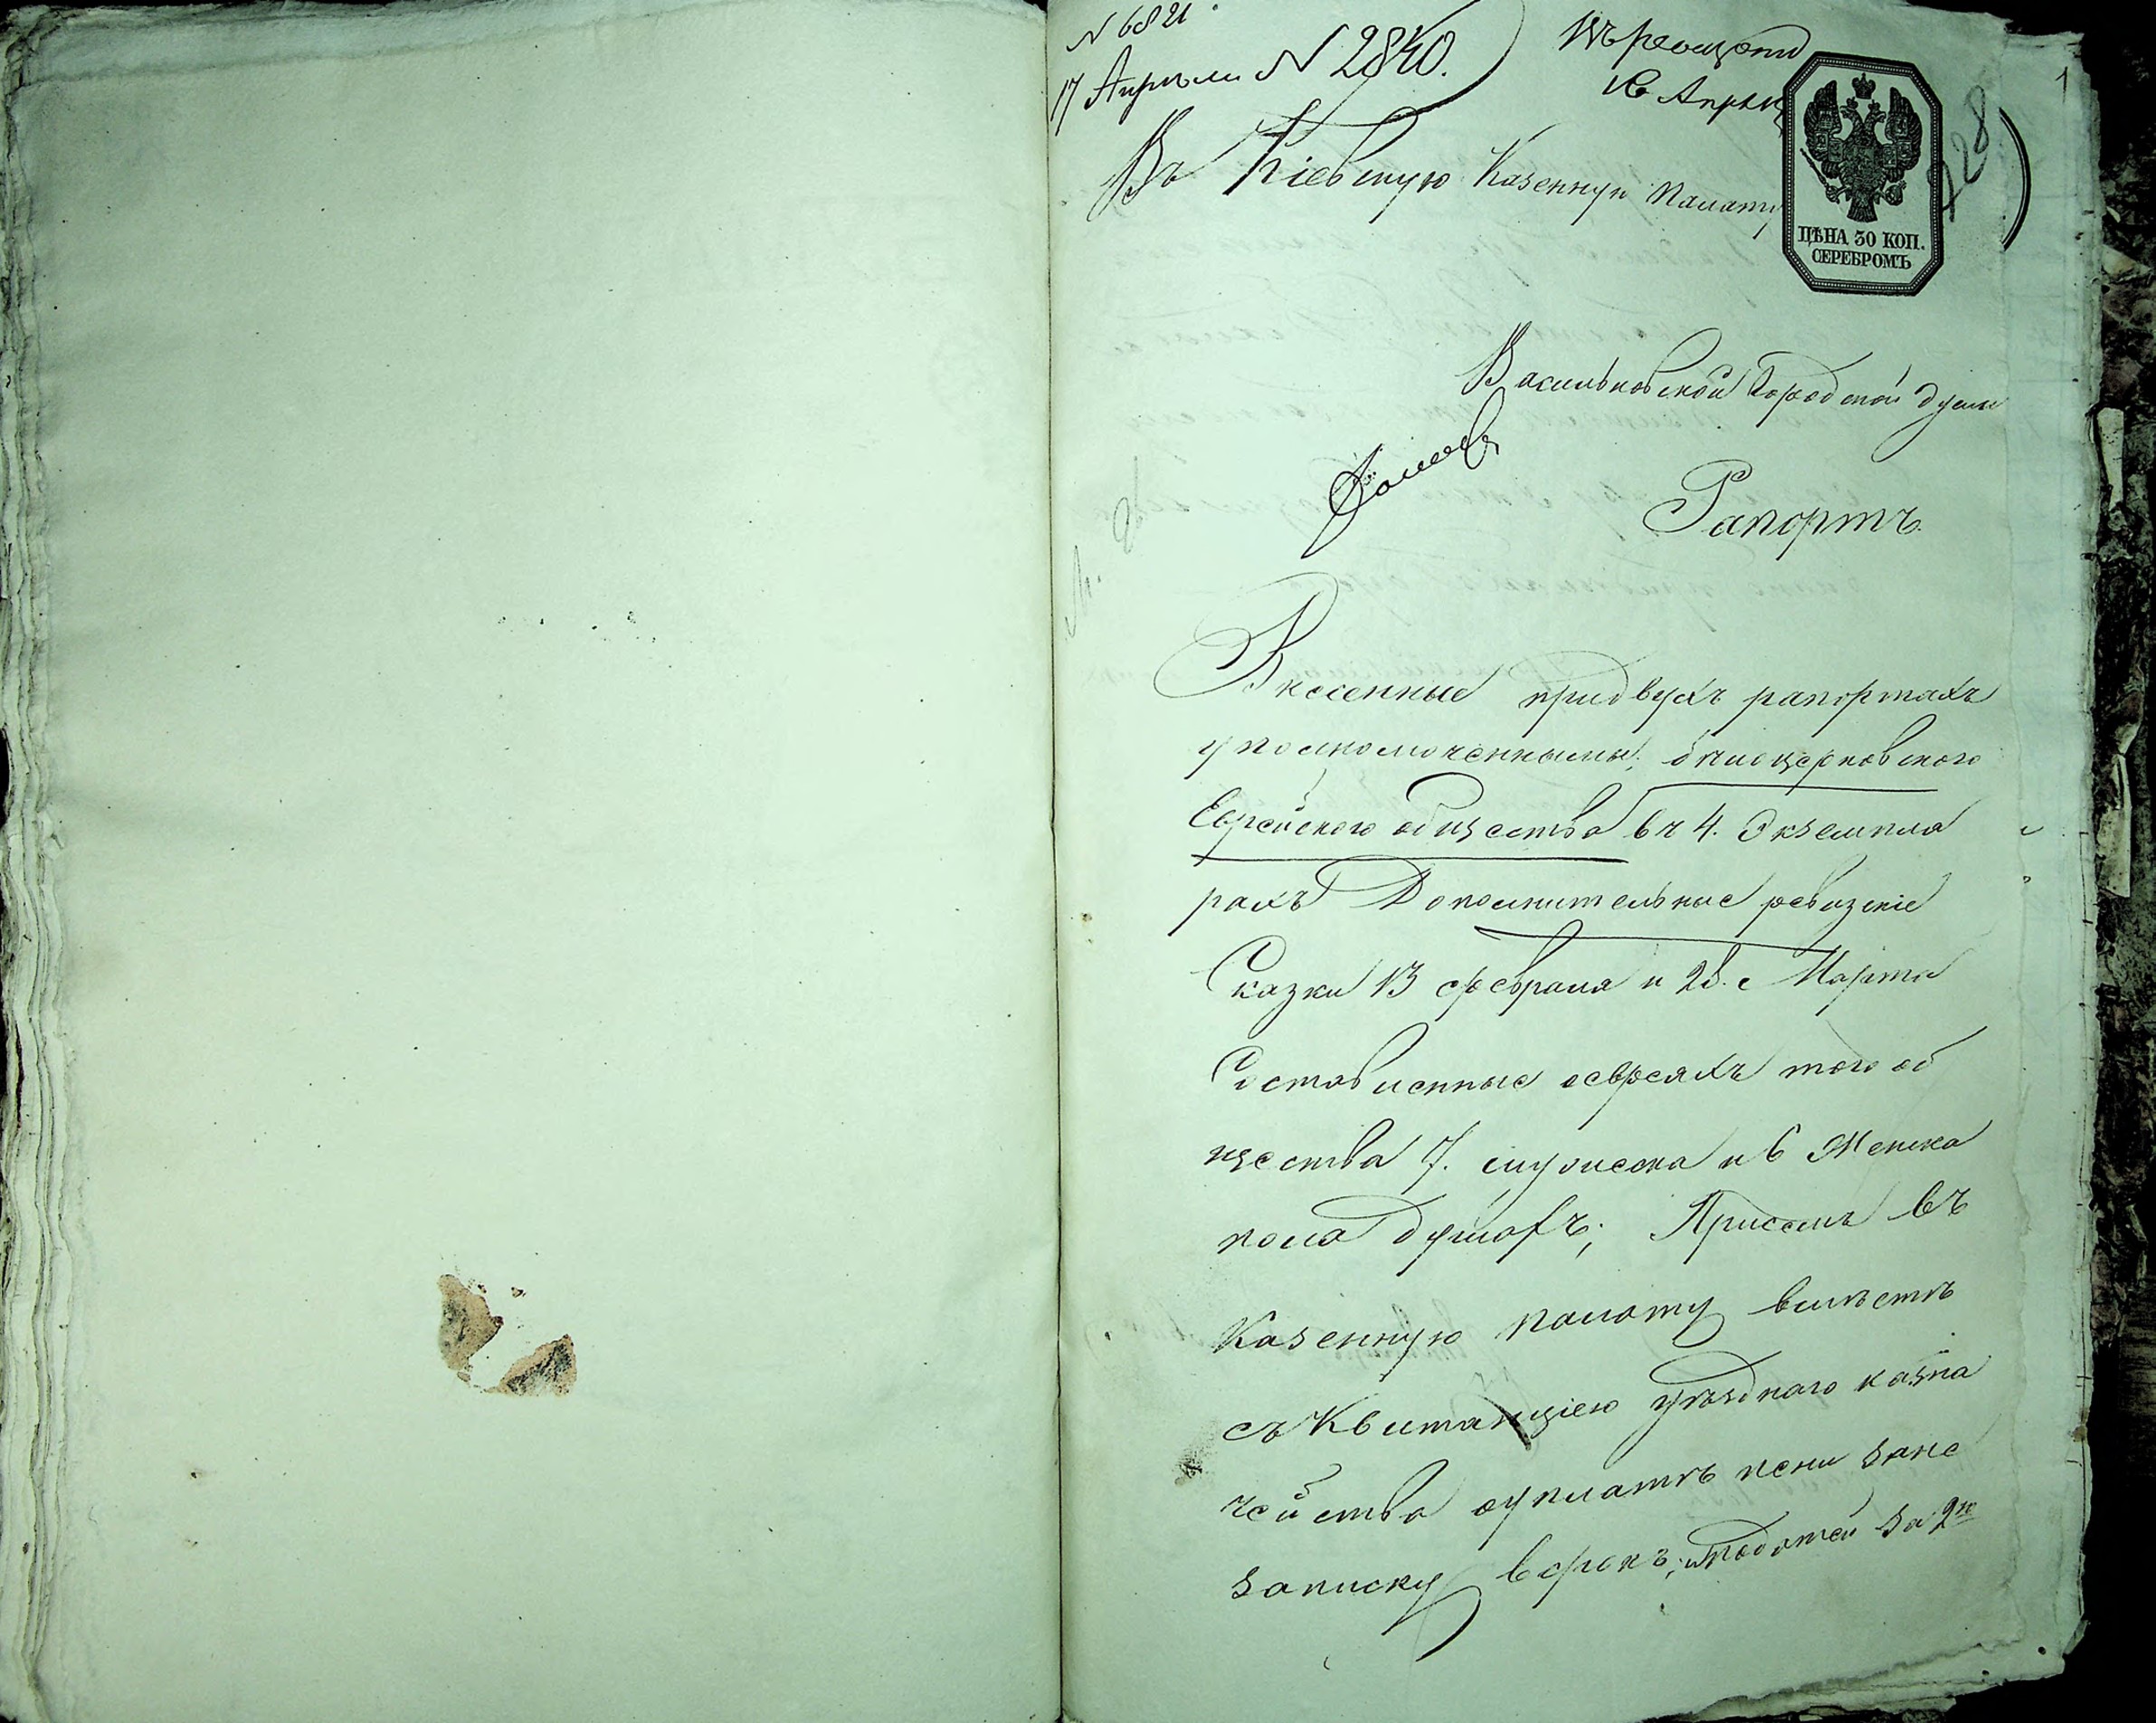 N 6821
17 Апрѣля N 2840.
Апрѣл
Въ Кіевскую Казенную Палату
ЦѢНА 30 КОП.
СЕРЕБРОМЪ
728
1
Васильковской Городской думы
Рапортъ.
Внесенные придвухъ рапортахъ
уполномоченнымъ, бѣлоцерковского
Еврейского общества въ 4. Экземпля
рахъ Дополнительные ревизскіе
Сказки 13 февраля и 28. Марта
Составленные оевреяхъ того об
щества 7. мужеска и 6 Женска
пола душахъ; При семъ въ
Казенную палату вмѣстѣ
съ Квитанціею уѣзднаго казна
чейства оуплатѣ пени зане
записку въ срокъ, и податей за 2ю